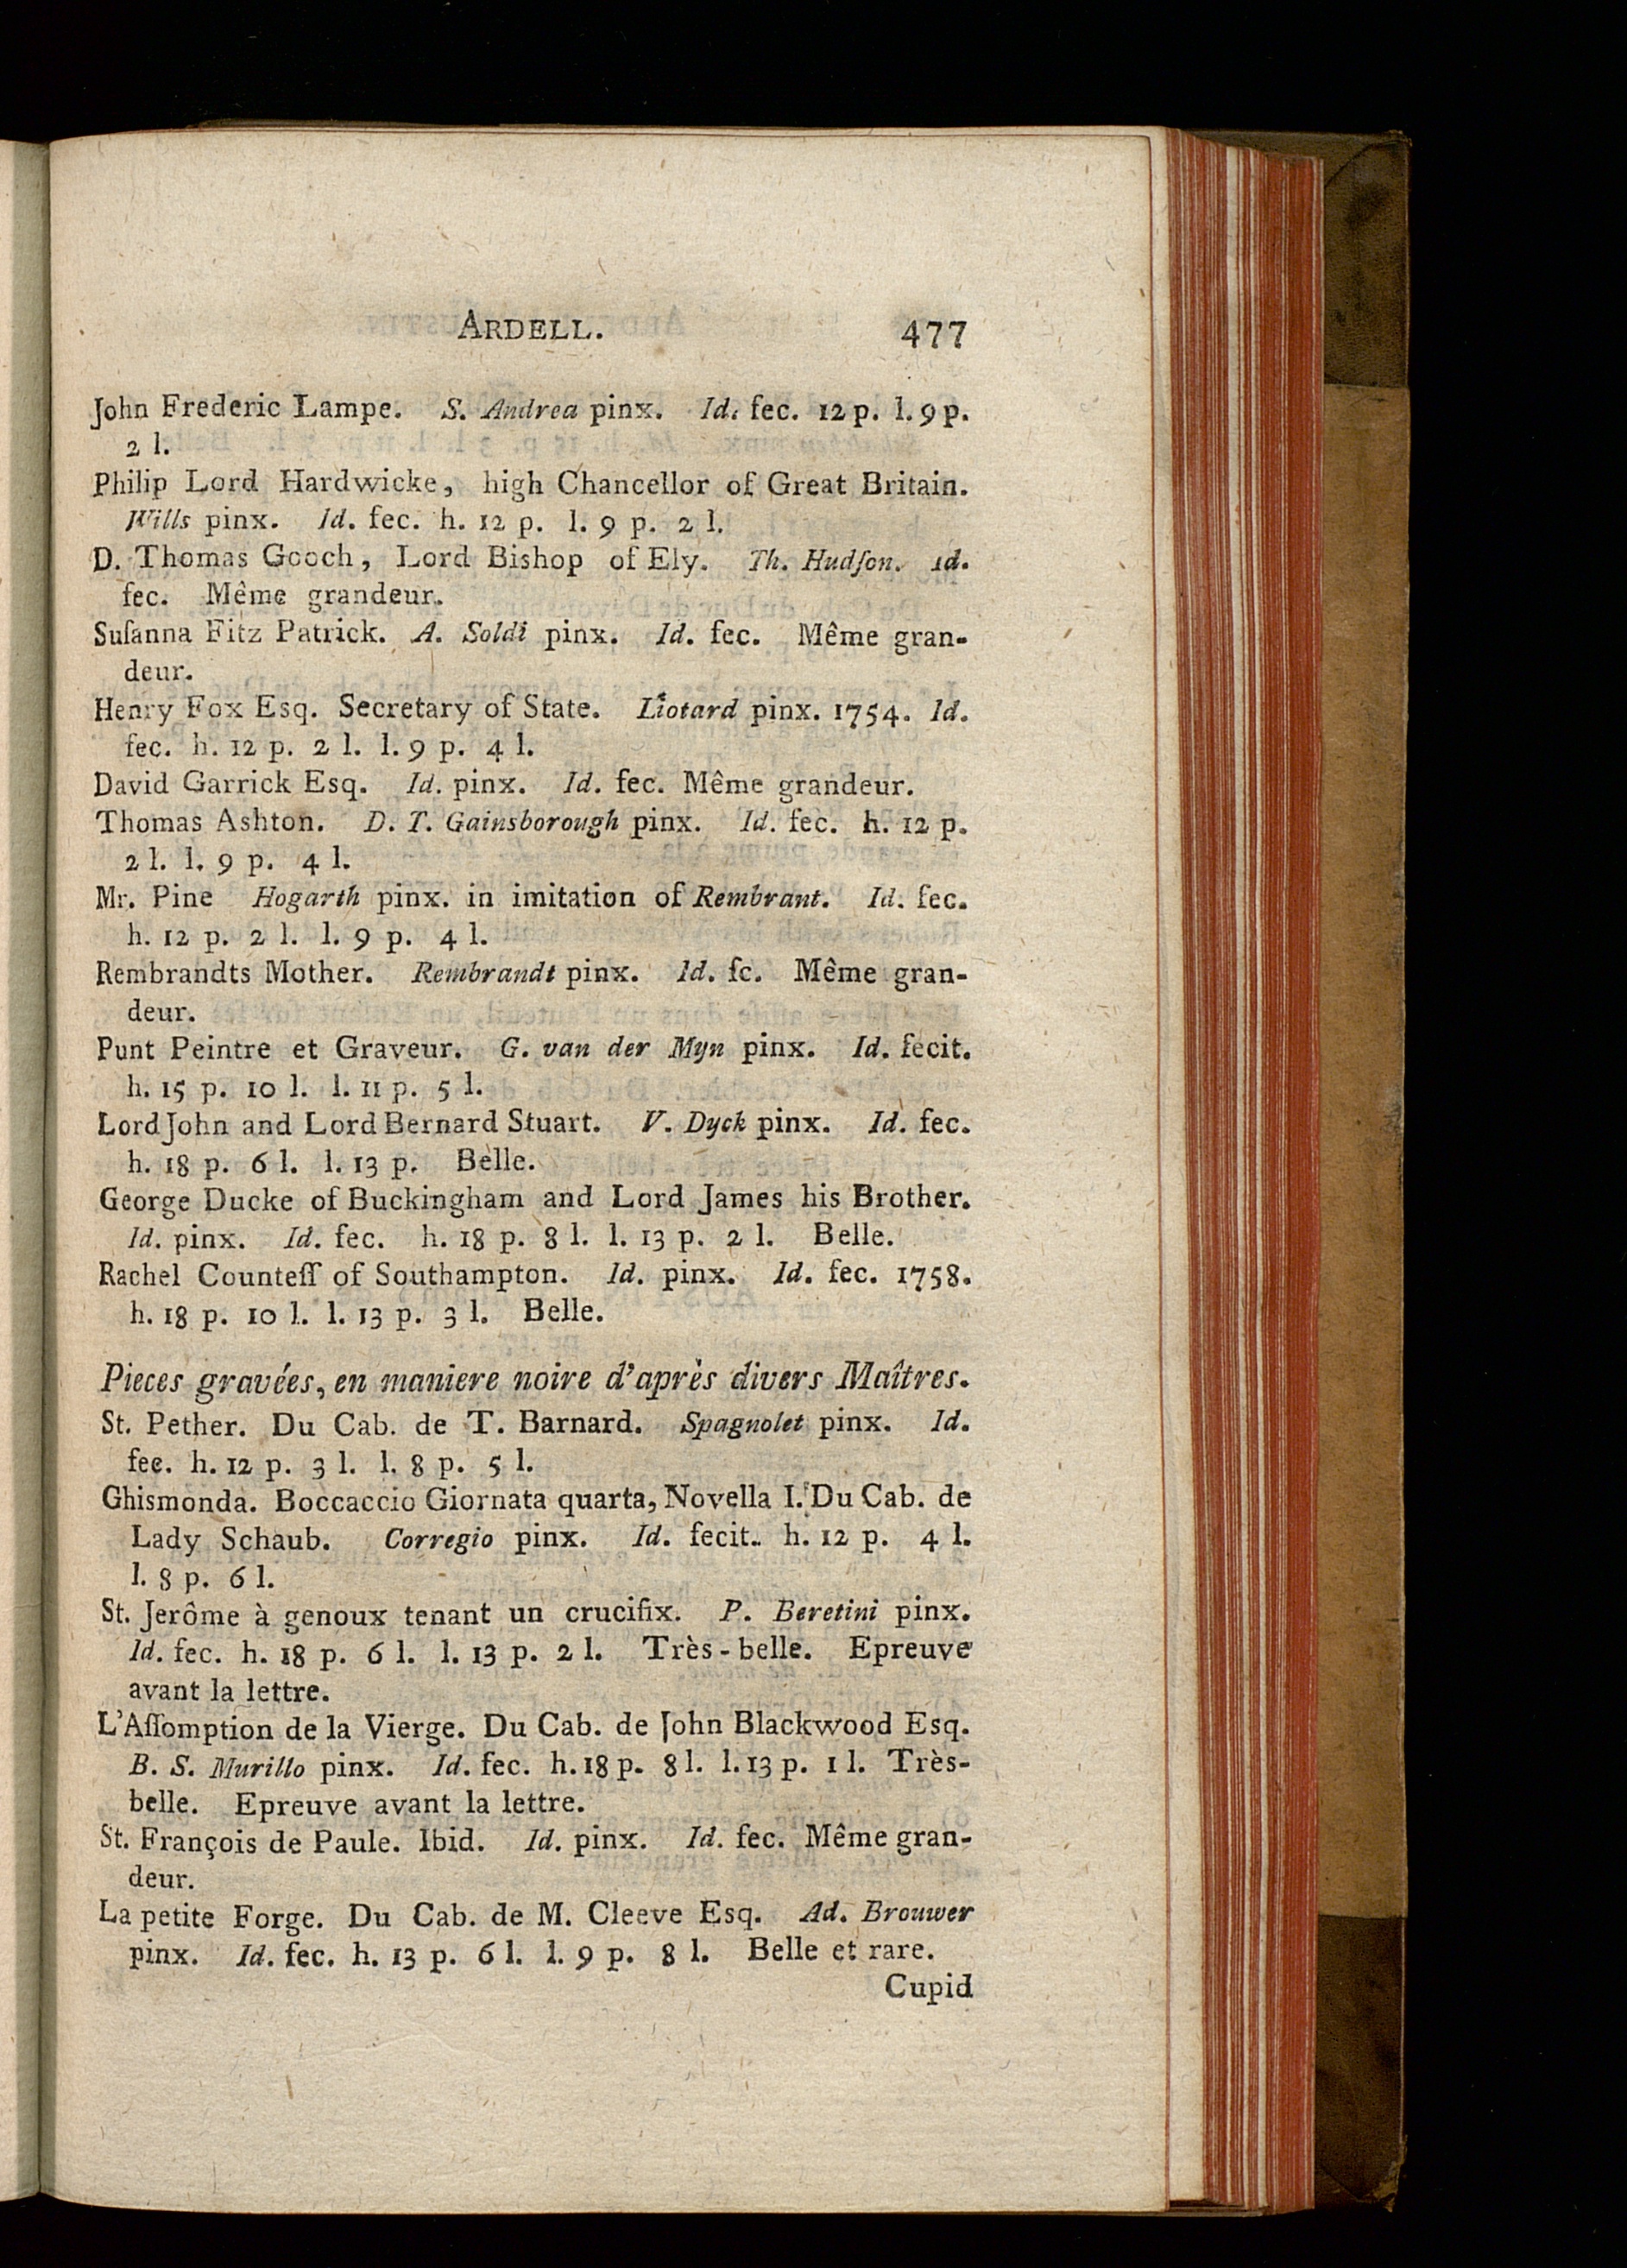 ARDELL. 477
John Frederic Lampe. S. Andrea pinx. Id. fec. 12 p. l. 9 p.
2 l.
Philip Lord Hardwicke, high Chancellor of Great Britain.
Wills pinx. Id. fec. h. 12 p. l. 9 p. 2 l.
D. Thomas Gooch, Lord Bishop of Ely. Th. Hudſon. Id.
fec. Même grandeur.
Suſanna Fitz Patrick. A. Soldi pinx. Id. fec. Même gran-
deur.
Henry Fox Esq. Secretary of State. Liotard pinx. 1754. Id.
fec. h. 12 p. 2 l. l. 9 p. 4 l.
David Garrick Esq. Id. pinx. Id. fec. Même grandeur.
Thomas Ashton. D. T. Gainsborough pinx. Id. fec. h. 12 p.
2 l. l. 9 p. 4 l.
Mr. Pine Hogarth pinx. in imitation of Rembrant. Id. fec.
h. 12 p. 2 l. l. 9 p. 4 l.
Rembrandts Mother. Rembrandt pinx. Id. ſc. Même gran-
deur.
Punt Peintre et Graveur. G. van der Myn pinx. Id. fecit.
h. 15 p. 10 l. l. 11 p. 5 l.
Lord John and Lord Bernard Stuart. V. Dyck pinx. Id. fec.
h. 18 p. 6 l. l. 13 p. Belle.
George Ducke of Buckingham and Lord James his Brother.
Id. pinx. Id. fec. h. 18 p. 8 l. l. 13 p. 2 l. Belle.
Rachel Counteſſ of Southampton. Id. pinx. Id. fec. 1758.
h. 18 p. 10 l. l. 13 p. 3 l. Belle.
Pieces gravées, en maniere noire d'après divers Maîtres.
St. Pether. Du Cab. de T. Barnard. Spagnolet pinx. Id.
fec. h. 12 p. 3 l. l. 8 p. 5 l.
Ghismonda. Boccaccio Giornata quarta, Novella I. Du Cab. de
Lady Schaub. Corregio pinx. Id. fecit. h. 12 p. 4 l.
l. 8 p. 6 l.
St. Jerôme à genoux tenant un crucifix. P. Beretini pinx.
Id. fec. h. 18 p. 6 l. l. 13 p. 2 l. Très-belle. Epreuve
avant la lettre.
L'Aſſomption de la Vierge. Du Cab. de John Blackwood Esq.
B. S. Murillo pinx. Id. fec. h. 18 p. 8 l. l. 13 p. 1 l. Très-
belle. Epreuve avant la lettre.
St. François de Paule. Ibid. Id. pinx. Id. fec. Même gran-
deur.
La petite Forge. Du Cab. de M. Cleeve Esq. Ad. Brouwer
pinx. Id. fec. h. 13 p. 6 l. l. 9 p. 8 l. Belle et rare.
Cupid